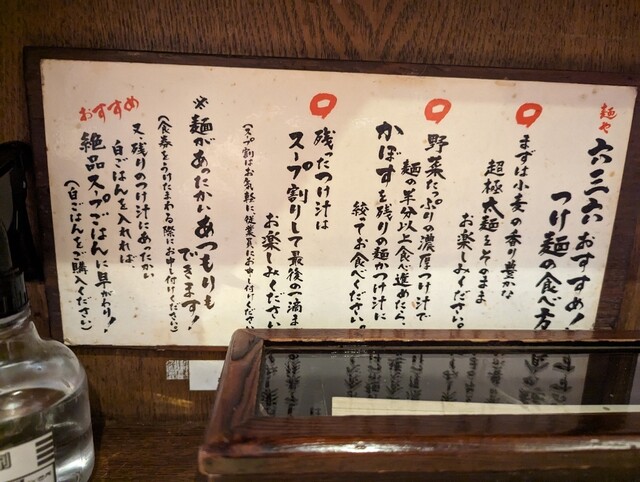 麺や 六三六 おすすめ!
つけ麺の食べ方
まずは小麦の香り豊かな
超極太麺をそのまま
お楽しみください。
野菜たっぷりの濃厚つけ汁で
麺の半分以上食べ進めたら、
かぼすを残りの麺かつけ汁に
絞ってお食べください。
残ったつけ汁は
スープ割りして最後の一滴ま
お楽しみください
(スープ割はお気軽に従業員にお申し付けください
※麺があったかいあつもりも
できます!
(食券をうけたまわる際にお申し付けください)
おすすめ
又、残りのつけ汁にあったかい
白ごはんを入れれば、
絶品スープごはんに早がわり!
(白ごはんをご購入ください)